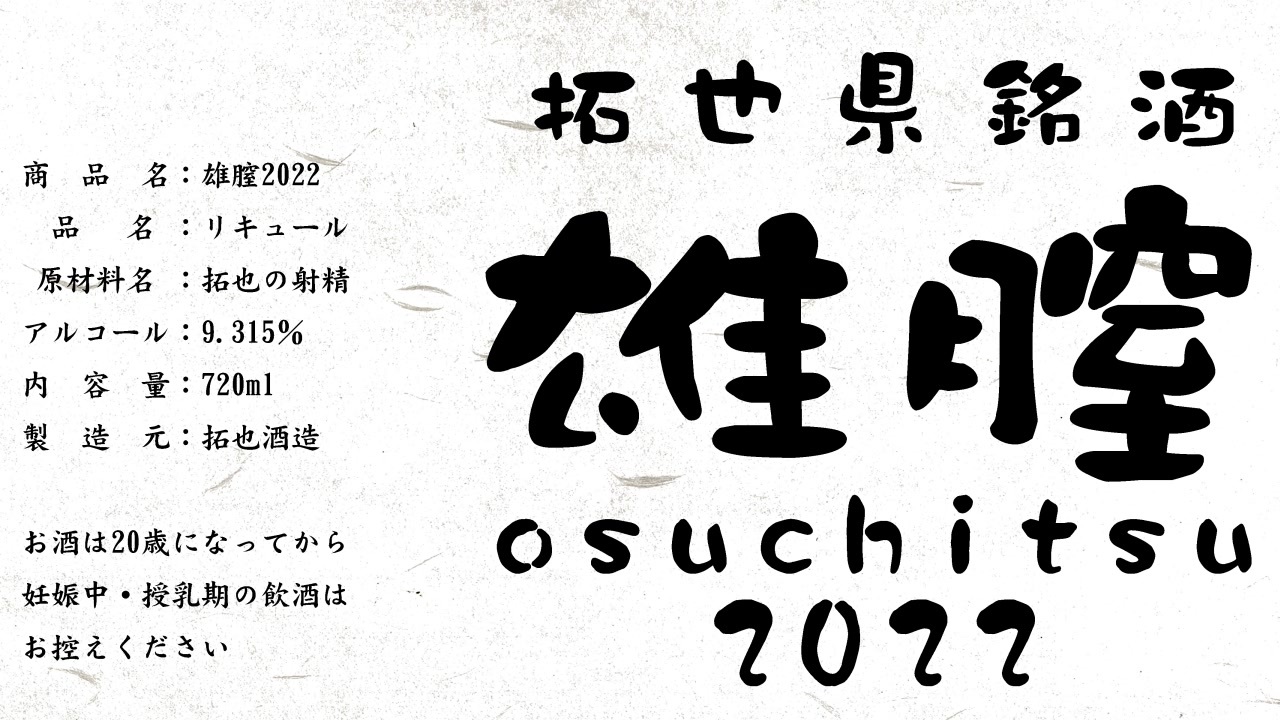 拓也県銘酒
雄膣
osuchitsu
2022
商品名：雄膣2022
品名：リキュール
原材料名：拓也の射精
アルコール：9.315%
内容量：720ml
製造元：拓也酒造
お酒は20歳になってから
妊娠中・授乳期の飲酒は
お控えください